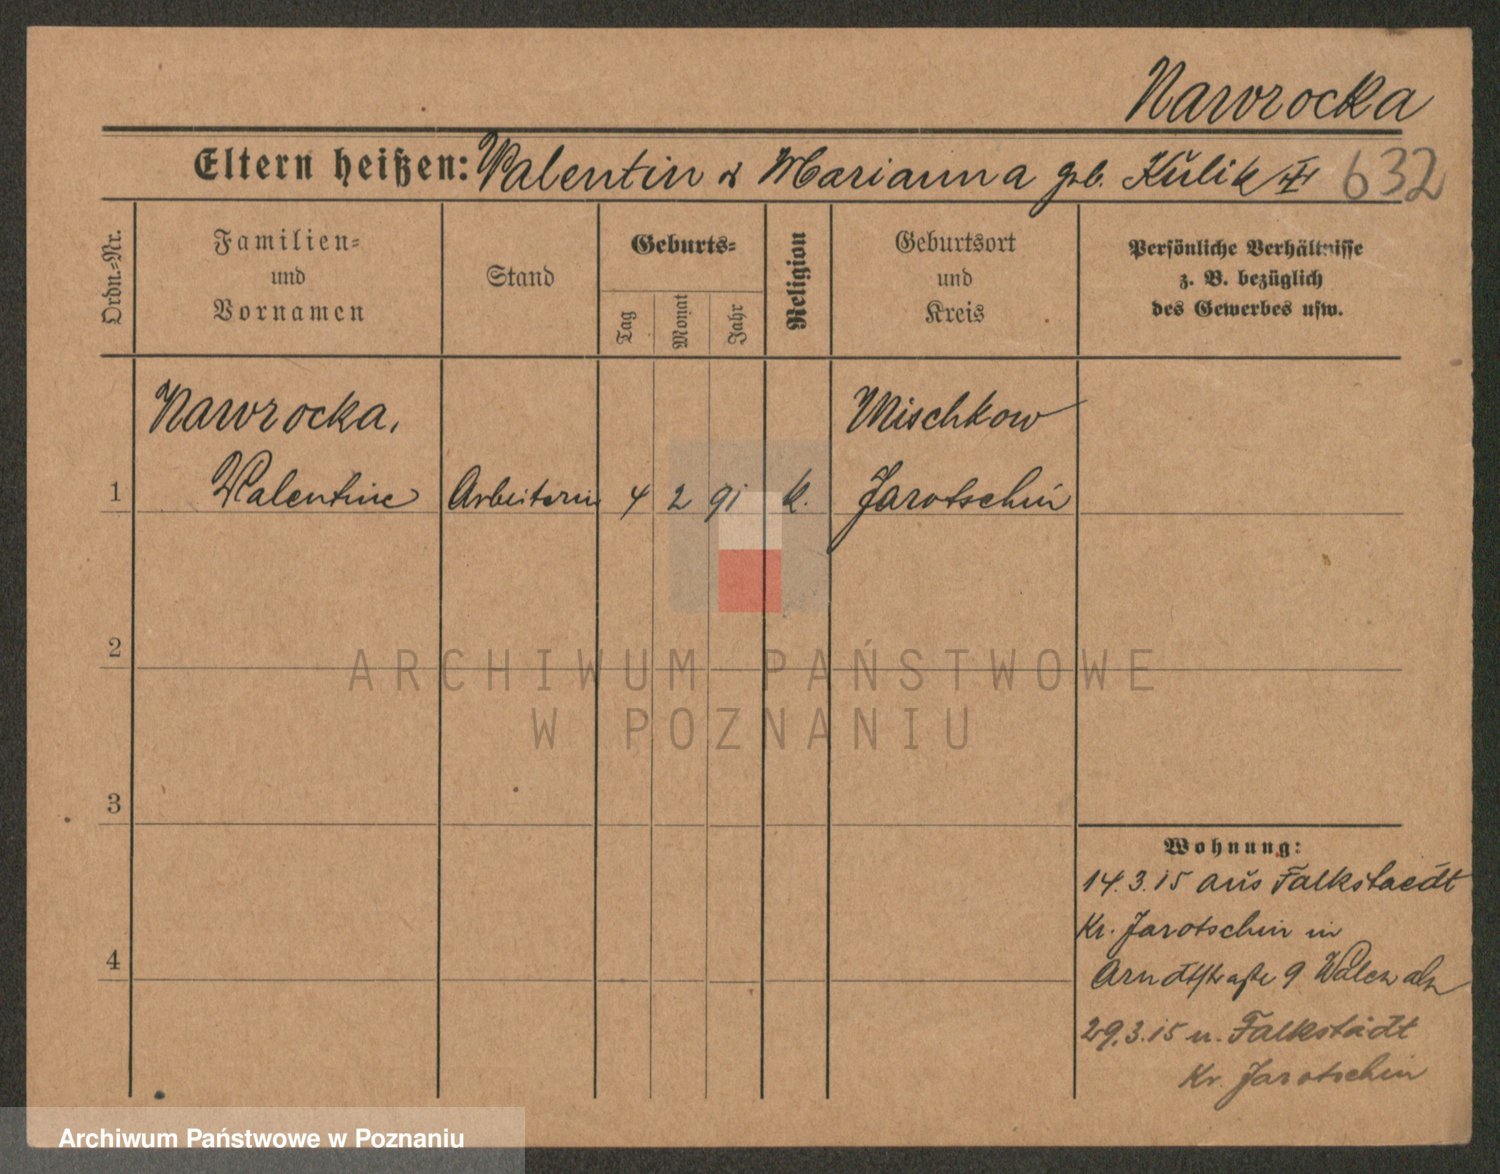 Nawrocka
Eltern heißen: Valentin & Marianna geb. Kulik 632
Ordn.=Nr.
Familien=
und
Vornamen
Stand
Geburts=
Tag
Monat
Jahr
Religion
Geburtsort
und
Kreis
Persönliche Verhältnisse
z. B. bezüglich
des Gewerbes usw.
Nawrocka,
Mischkow
1 Valentine Arbeiterin 4 2 91 k. Jarotschin
2
ARCHIWUM PAŃSTWOWE
W POZNANIU
3
Wohnung:
14.3.15 aus Falkstaedt
Kr. Jarotschin in
4
Arndtstraße 9
29.3.15 n. Falkstädt
Kr. Jarotschin
Archiwum Państwowe w Poznaniu